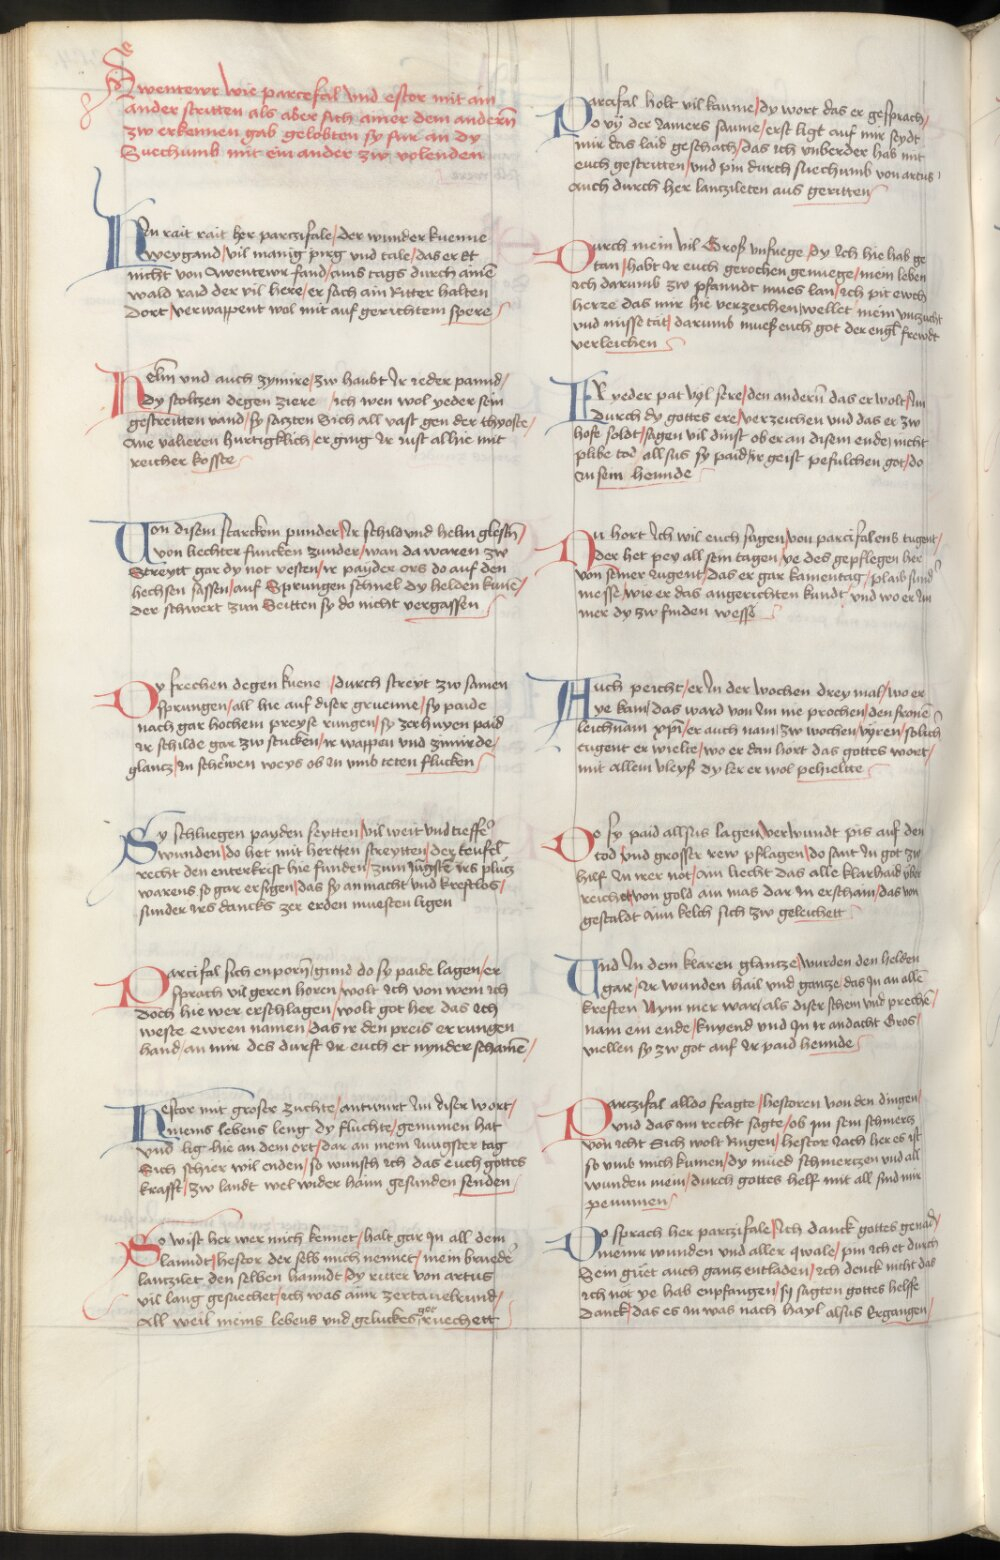 Awentewr wie parcefal und estor mit ain
ander stritten als aber sich ainer dem andern̄
zw erkennen gab gelobten sy fur an dy
Suechumb mit ein ander zw volenden
Nun rait rait her parczifale / der wunder kuenne
weygand / vil manig pirg und tale / das er Et
nicht von Awentewr fand / ains tags durch ainē
wald raid der vil here / er sach ain Ritter halten
dort / verwappent wol mit auf gerichtem spere
Helm und auch zymire / zw haubt Ir yeder pannd /
dy stoltzen degen ziere / ich wen wol yeder sein
gestreitten vand / sy saczten Sich all vast gen der thyoste /
ane valieren hurtigklich / er ging Ir iust alhie mit
reicher kosste
Von disem starckem punder / Ir schild und helm glestn̄ /
von liechter funcken zunder / wan da waren zw
Streytt gar dy not vesten / ir payder ors do auf den
hechsen sassen / auf Sprungen schnel dy helden küne /
der schwert zun Seitten sy do nicht vergassen
Dy frechen degen kuene / durch streyt zw samen
sprungen / all hie auf diser gruenne / sy paide
nach gar hochem preyse rungen / sy zerhuyen paid
ir schilde gar zw stucken / ir wappen und zimirde /
glancz / in schewen weys ob in umb teten flucken
Sy schluegen payden seytten / vil weit und tieffe
wunden / do het mit hertten streytten / der teufel
recht den enterkrist hie funden / zum iungstē irs plutz
warens so gar ersigen / das sy an macht und kreftlos /
sunder irs dancks zer erden muesten ligen
Parcifal sich enporn̄ / gund do sy paide lagen / er
sprach vil geren horen / wolt ich von wem ich
doch hie wer erschlagen / wolt got her das ich
weste ewren namen / das ir den preis errungen
hand / an mir des durft ir euch et nynder schamē /
Hestor mit groser zuchte / antwurt Im diser wort /
meins lebens leng dy fluchte / genumen hat
und lig hie an dem ort / dar an mein iungster tag
Sich schier wil enden / so wunsch ich das euch gottes
krafft / zw landt wel wider haim gesunden senden
So wist her wer mich kennet / halt gar In all dem
lanndt / hestor der selb mich nennet / mein bruedē
lanczilet den selben hanndt / dy ritter von artus
vil lang gesuechet / ich was ainr zer tauelrund /
all weil meins lebens und geluckes got ruechett
Parcifal holt vil kaume / dy wort das er gesprach /
So vij der iamers saume / erst ligt auf mir seydt
mir das laid geschach / das ich unberder hab mit
euch gestritten / und pin durch suechumb von artus
auch durch her lanczileten aus geritten
Durch mein vil Groß unfuege / dy ich hie hab ge
tan / habt ir euch gerochen genuege / mein leben
ich darumb zw pfanndt mues lan / ich pit ewch
herze das mir hie verzeichen / wellet mein unzucht
und misse tät / darumb mueß euch got der engl frewdt
verleichen
Er yeder pat vyl sere / den andern̄ das er wolt / Im
durch dy gottes ere / verzeichen und das er zw
hofe soldt / sagen vil dinst ob er an disem ende / nicht
plibe tod / all sus sy paid / ir geist pefulchen got / do
in sein hennde
Nu hort ich wil euch sagen / von parcifalens tugent /
der het pey all sein tagen / ye des gepflegen her
von seiner iugent / das er gar kainen tag / plaib sund
messe / wie er das angerichten kundt / und wo er Im
mer dy zw finden wesse
Auch peicht / er In der wochen drey mal / wo er
ye kam / das ward von Im nie prochen / den fronē
leichnam xp̄i / er auch nam / zw wochen vyren / solich
tugent er wielte / wo er dan hort das gottes wort /
mit allem vleyß dy ler er wol pehieltte
Do sy paid allsus lagen / verwundt pis auf den
tod / und grosser rew pflagen / do sant In got zw
hilf In irer not / ain liecht das alle klarhaid yber
reichet / von gold ain vas dar In erschain / das was
gestaldt ainn kelch sich zw geleichett
Und In dem klaren glantze / wurden den helden
gar / ir wunden hail und gantze / das In an allē
kreften Nym mer war / als diser schein und prechē /
nam ein ende / knyend und In ir andacht Gros /
viellen sy zw got auf ir paid hennde
Parczifal alldo fragte / hestoren von den dingen /
und das im recht sagte / ob im sein schmercz
von icht Sich wolt Ringen / hestor Jach her es ist
so umb mich kumen / dy mued schmertzen und all
wunden mein / durch gottes helf mit all sind mir
penumen
Do sprach her parczifale / ich danck gottes genad /
meinr wunden und aller qwale / pin ich et durch
Sein guet auch gantz entladen / ich denck nicht das
ich not ye hab enpfangen / sy sagten gottes helffe
danck / das es in was nach hayl alsus Ergangen /